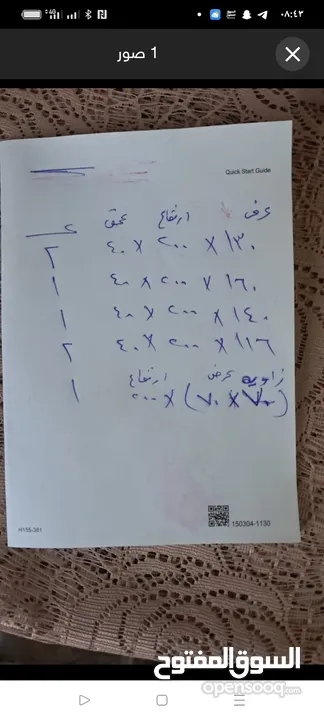 ٠٨:٤٣
1 صور
Quick Start Guide
عرض ارتفاع عمق ع
١٣٠ X ٢٠٠ X ٤٠ ٢
١٦٠ X ٢٠٠ X ٤٠ ١
١٤٠ X ٢٠٠ X ٤٠ ١
١١٦ X ٢٠٠ X ٤٠ ٢
زاويه عرض ارتفاع
(٧٠ X ٧٠) X ٢٠٠ ١
H155-381
150304-1130
السوق المفتوح
opensooq.com